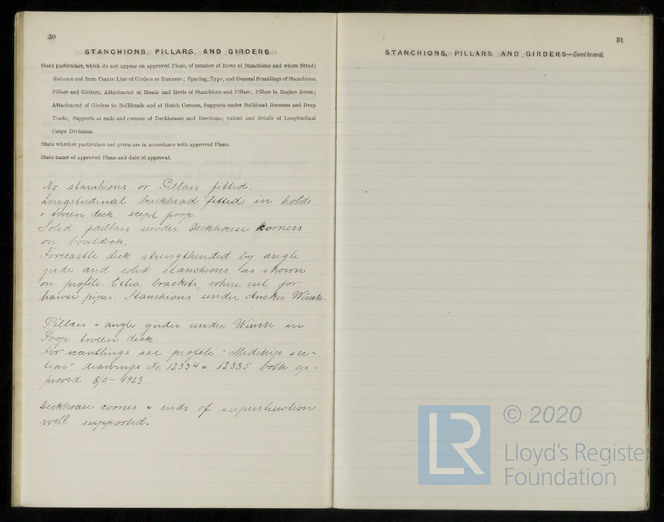 30
STANCHIONS, PILLARS, AND GIRDERS
State particulars, which do not appear on approved Plans, of number of Rows of Stanchions and where fitted;
distance out from Centre Line of Girders or Runners; Spacing, Type, and General Scantlings of Stanchions,
Pillars and Girders; Attachment at Heads and Heels of Stanchions and Pillars; Pillars in Engine Room;
Attachment of Girders to Bulkheads and at Hatch Corners, Supports under Bulkhead Recesses and Deep
Tanks; Supports at ends and corners of Deckhouses and Erections; extent and details of Longitudinal
Cargo Divisions.
State whether particulars not given are in accordance with approved Plans.
State name of approved Plans and date of approval.
No stanchions or Pillars fitted.
Longitudinal bulkhead fitted in holds
& tween deck. except poop
Solid paillars under Deckhouse corners
on boatdeck.
Forecastle deck strengthended by angle
girde and solid stanchions as shown
on profile. Extra brackets, where cut for
hawse pipes. Stanchions under Anchor Winch.
Pillars & angle girder under Winch in
Poop tween deck.
For scantlings see profile "Midship sec-
tion" drawings No. 12334 & 12335 both ap-
proved 8/5-1923.
Deckhouse corners & ends of superstruction
well supported.
31
STANCHIONS, PILLARS, AND GIRDERS—Continued.
LR
© 2020
Lloyd's Register
Foundation